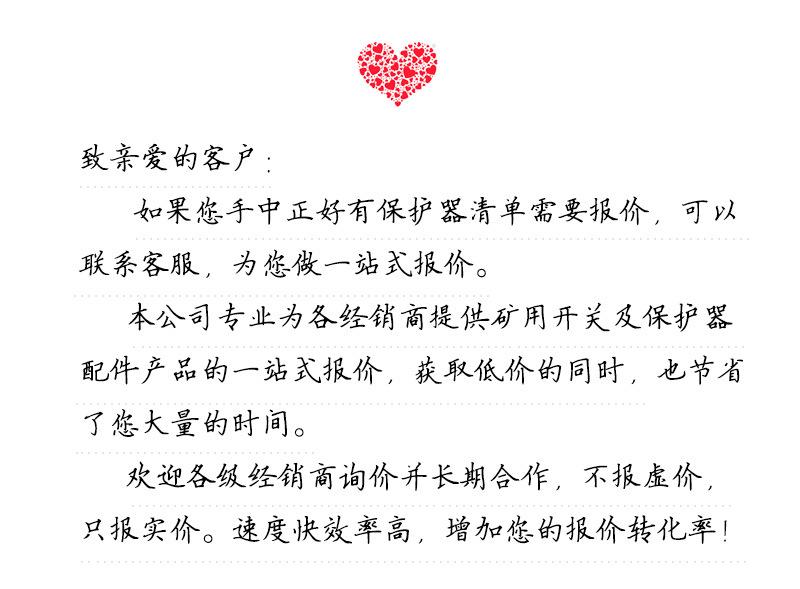 致亲爱的客户：
如果您手中正好有保护器清单需要报价，可以
联系客服，为您做一站式报价。
本公司专业为各经销商提供矿用开关及保护器
配件产品的一站式报价，获取低价的同时，也节省
了您大量的时间。
欢迎各级经销商询价并长期合作，不报虚价，
只报实价。速度快效率高，增加您的报价转化率！